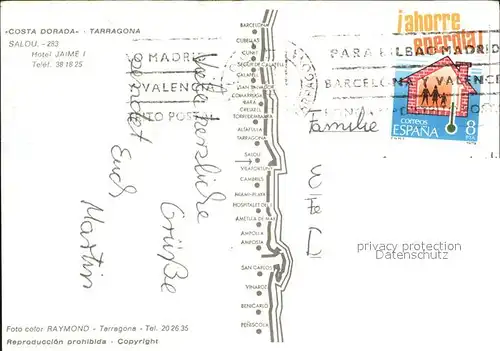 «COSTA DORADA» - TARRAGONA
SALOU. - 283
Hotel JAIME I
Teléf. 38 18 25
O MADRID
VALENC
TO POST
BARCELONA
CUBELLAS
CUNIT
SEGUR DE CALAFELL
CALAFELL
SAN SALVADOR
COMARRUGA
TORREDEMBARRA
ALTAFULLA
TARRAGONA
SALOU
VILAFORTUNY
CAMBRILS
MIAMI-PLAYA
HOSPITALET DEL I.
AMETLLA DE MAR
AMPOLLA
AMPOSTA
SAN CARLOS
VINAROZ
BENICARLO
PEÑISCOLA
¡ahorre
energía!
PARA BILBAO MADRID
BARCELONA VALENCI
correos
ESPAÑA 8
PTA
Familie
Viele herzliche
Grüße
sendet Euch
Martin
privacy protection
Datenschutz
Foto color RAYMOND - Tarragona - Tel. 20 26 35
Reproducción prohibida - Copyright